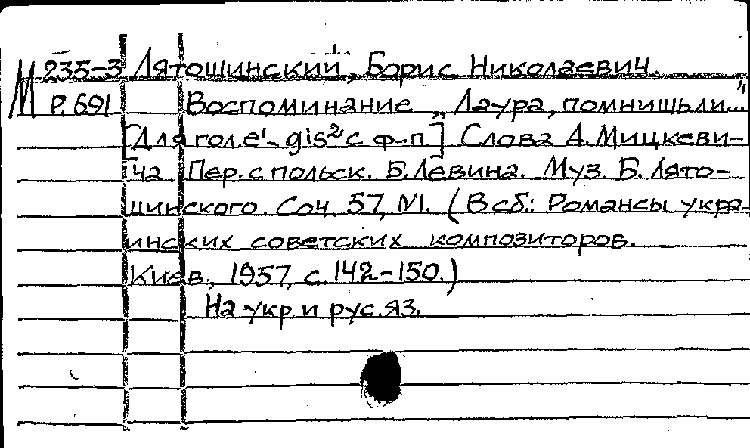 М 235-3 Лятошинский, Борис Николаевич.
Р.691 Воспоминание „Лаура, помнишь ли..."
[Для гол. e¹-gis² с ф-п] Слова А. Мицкеви-
ча. Пер. с польск. Б. Левина. Муз. Б. Лято-
шинского. Соч. 57, №1. (В сб.: Романсы укра-
инских советских композиторов.
Киев, 1957, с. 142-150.)
На укр и рус. яз.